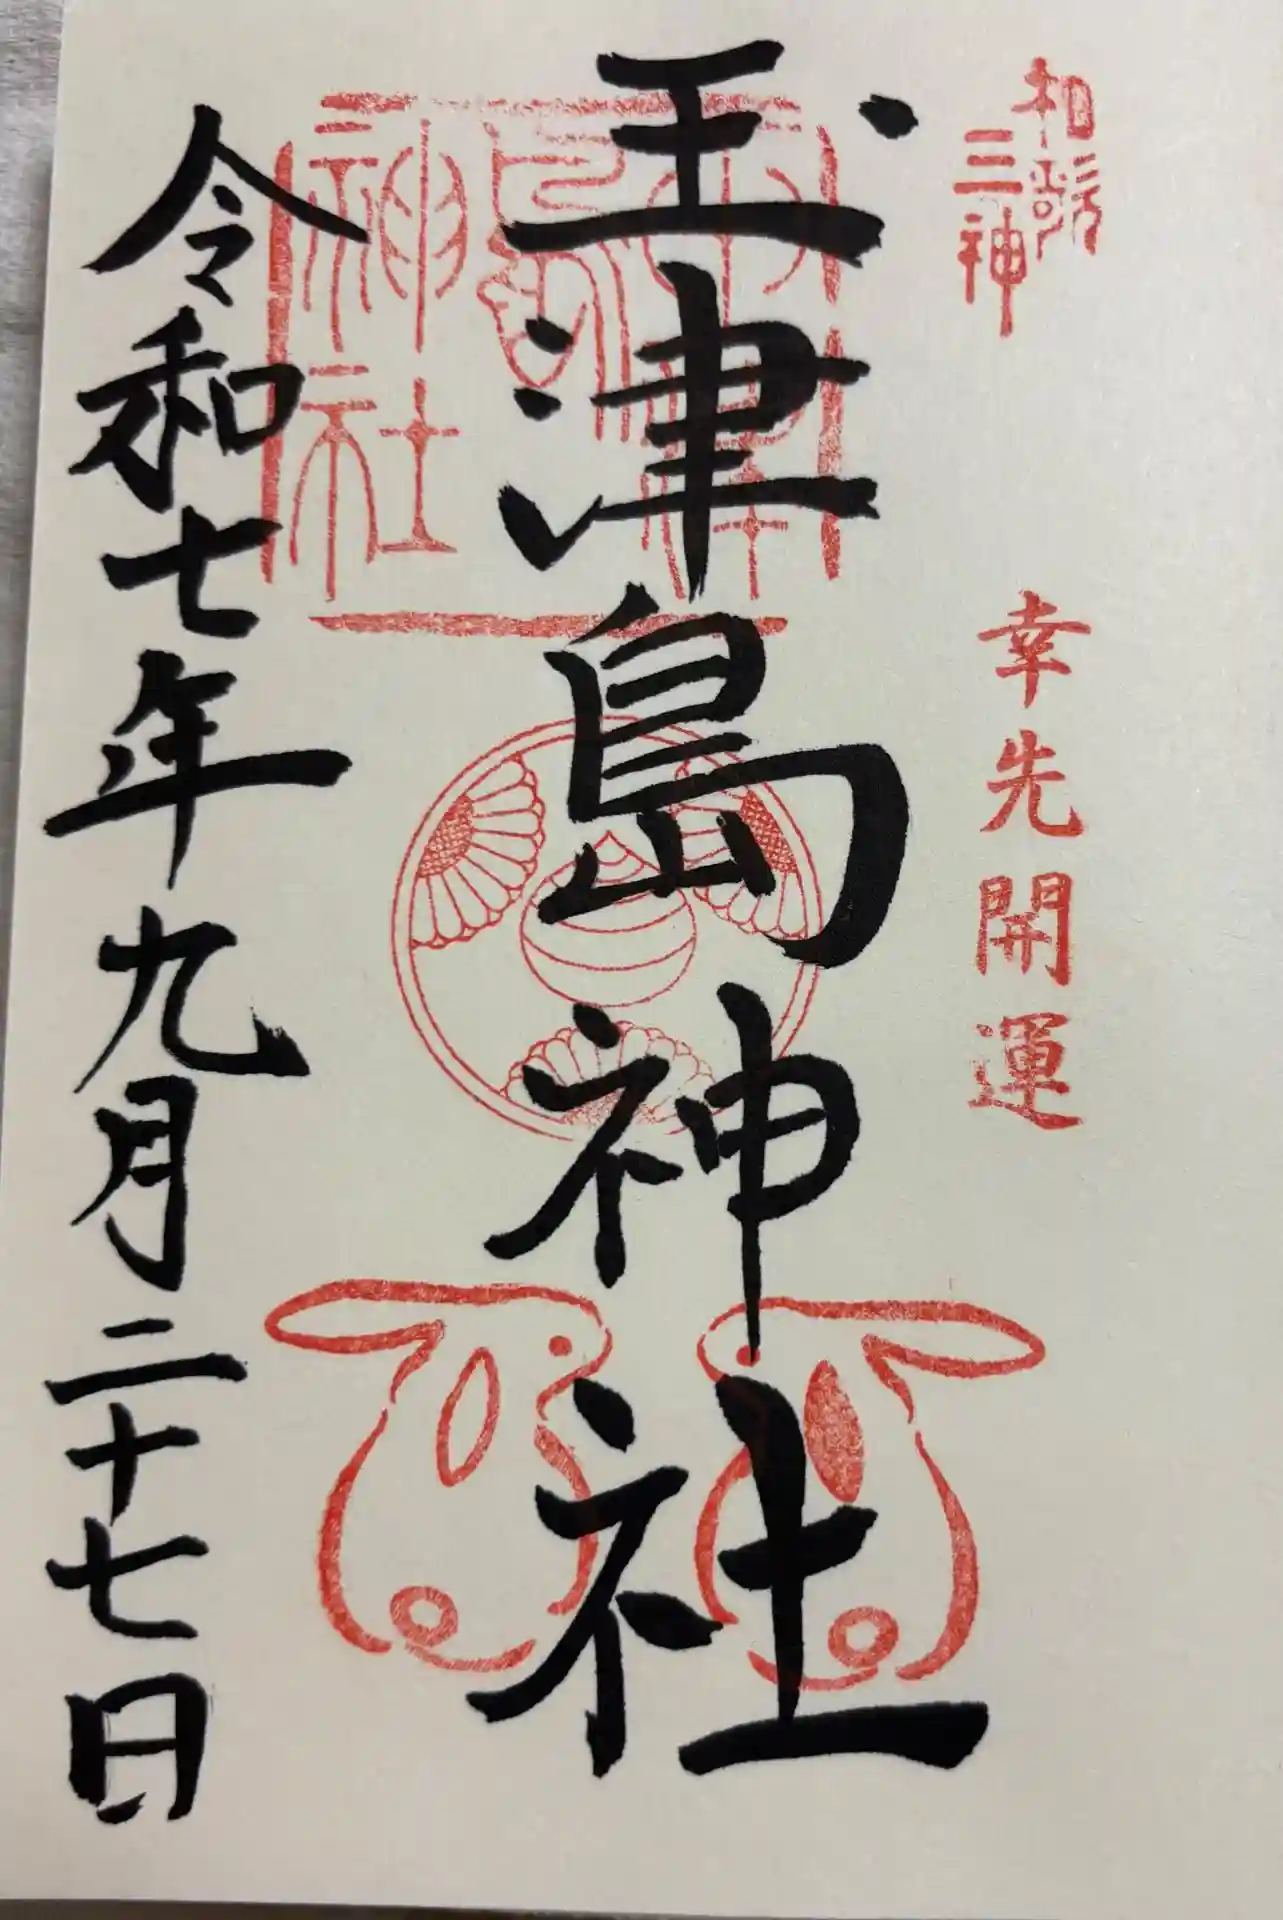 和歌
三神
幸先開運
玉津島神社
令和七年九月二十七日